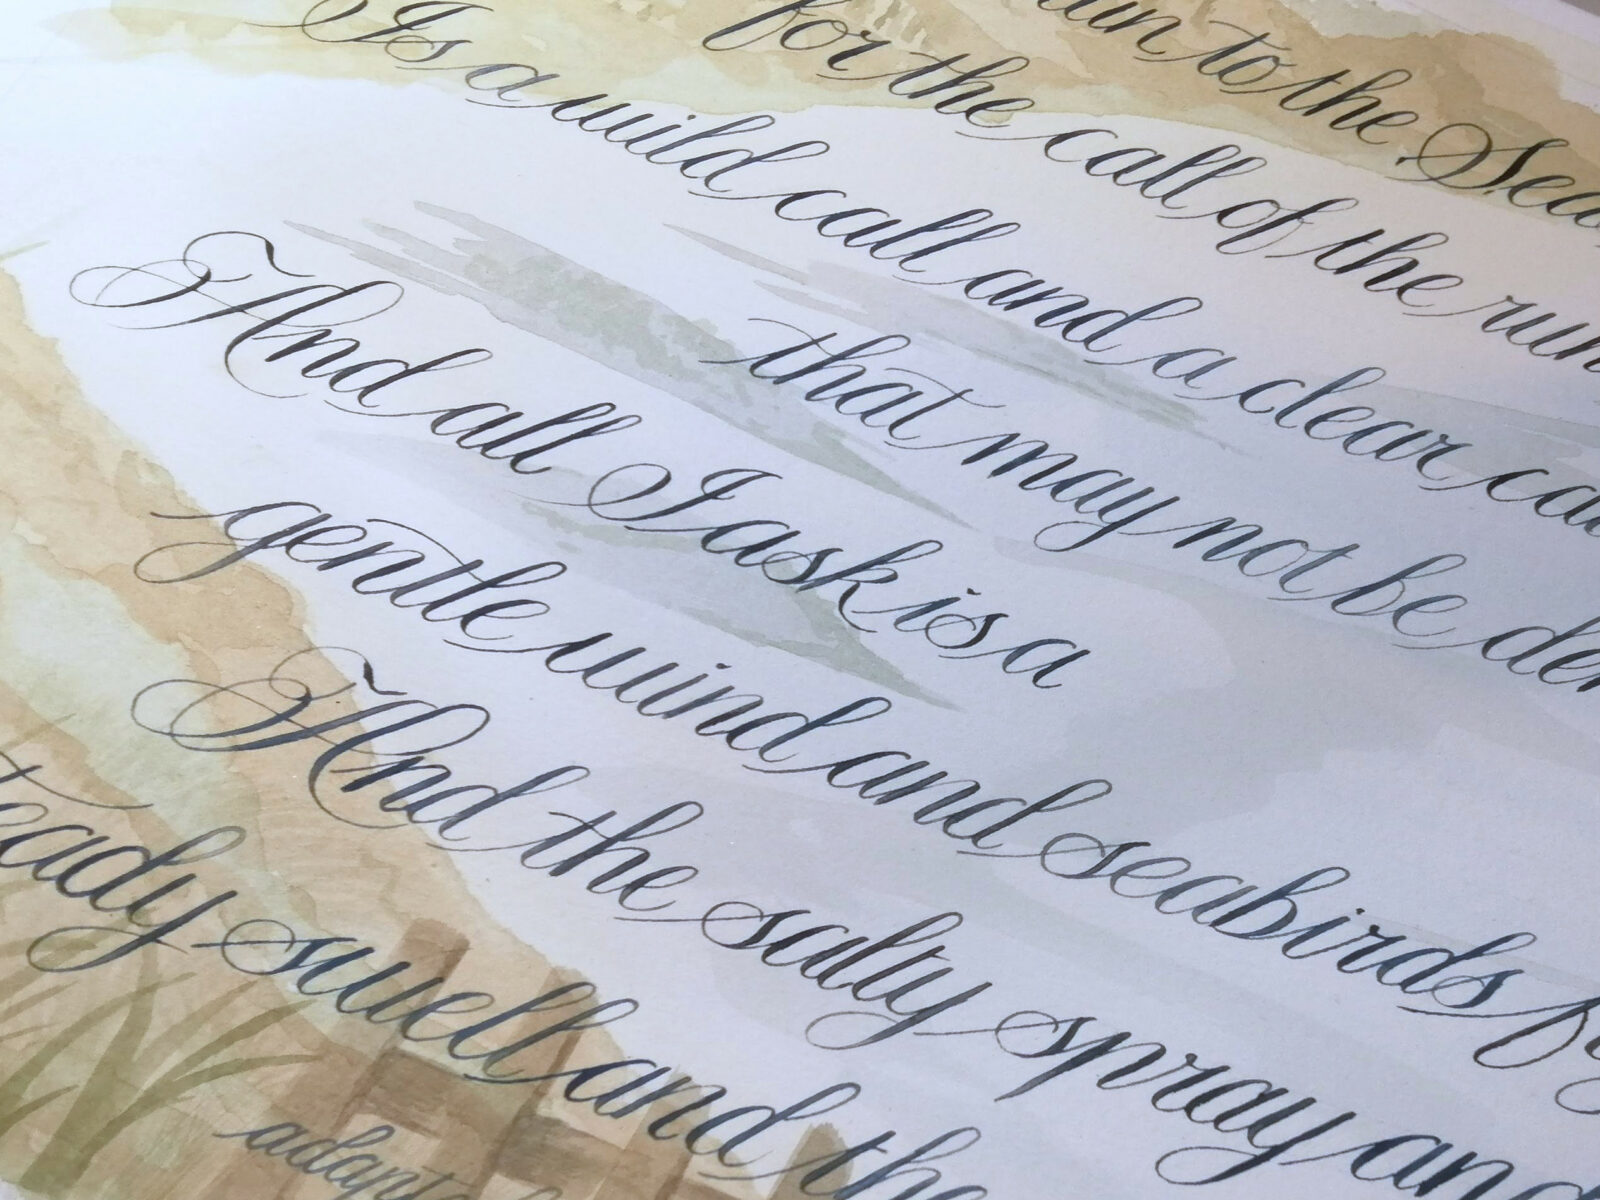 to the Seas
for the call of the run
Is a wild call and a clear ca
that may not be de
And all I ask is a
gentle wind and seabirds
And the salty spray and
teady swell and the
adapt